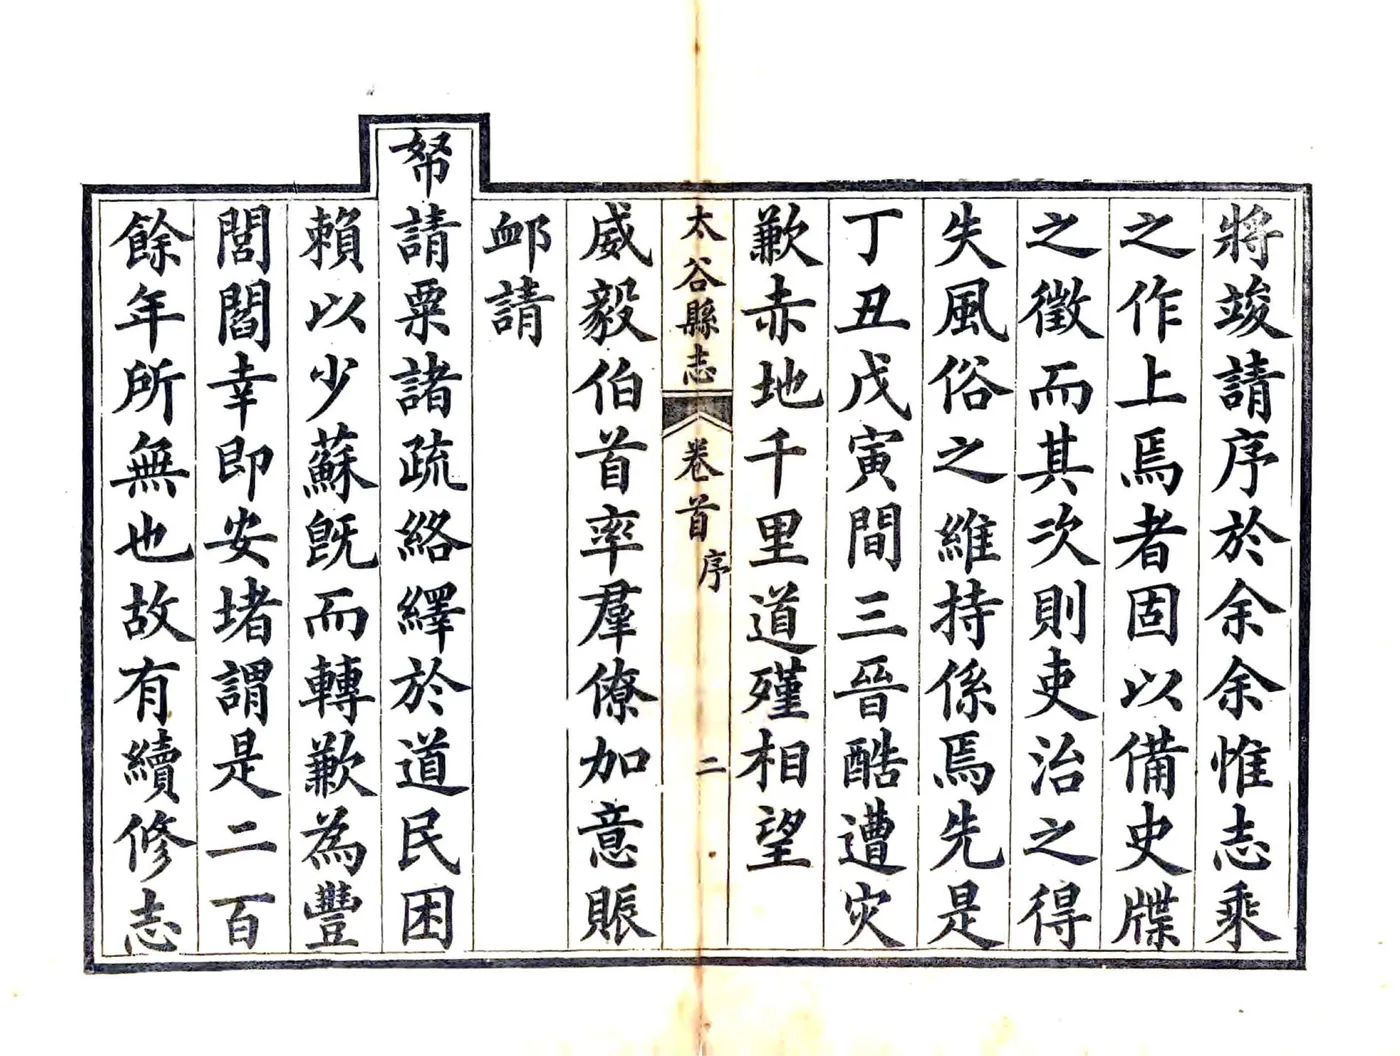 將竣請序於余余惟志乘
之作上焉者固以備史牒
之徵而其次則吏治之得
失風俗之維持係焉先是
丁丑戊寅間三晉酷遭灾
歉赤地千里道殣相望
太谷縣志 卷首 序 二
威毅伯首率羣僚加意賑
䘏請
帑請粟諸疏絡繹於道民困
賴以少蘇旣而轉歉為豐
閭閻幸即安堵謂是二百
餘年所無也故有續修志